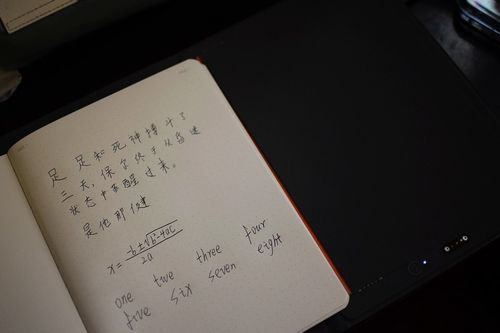 足足和死神搏斗了
三天,保尔终于从昏迷
状态中苏醒过来。
是他那健
x = -b±√b²-4ac / 2a
one two three four
five six seven eight